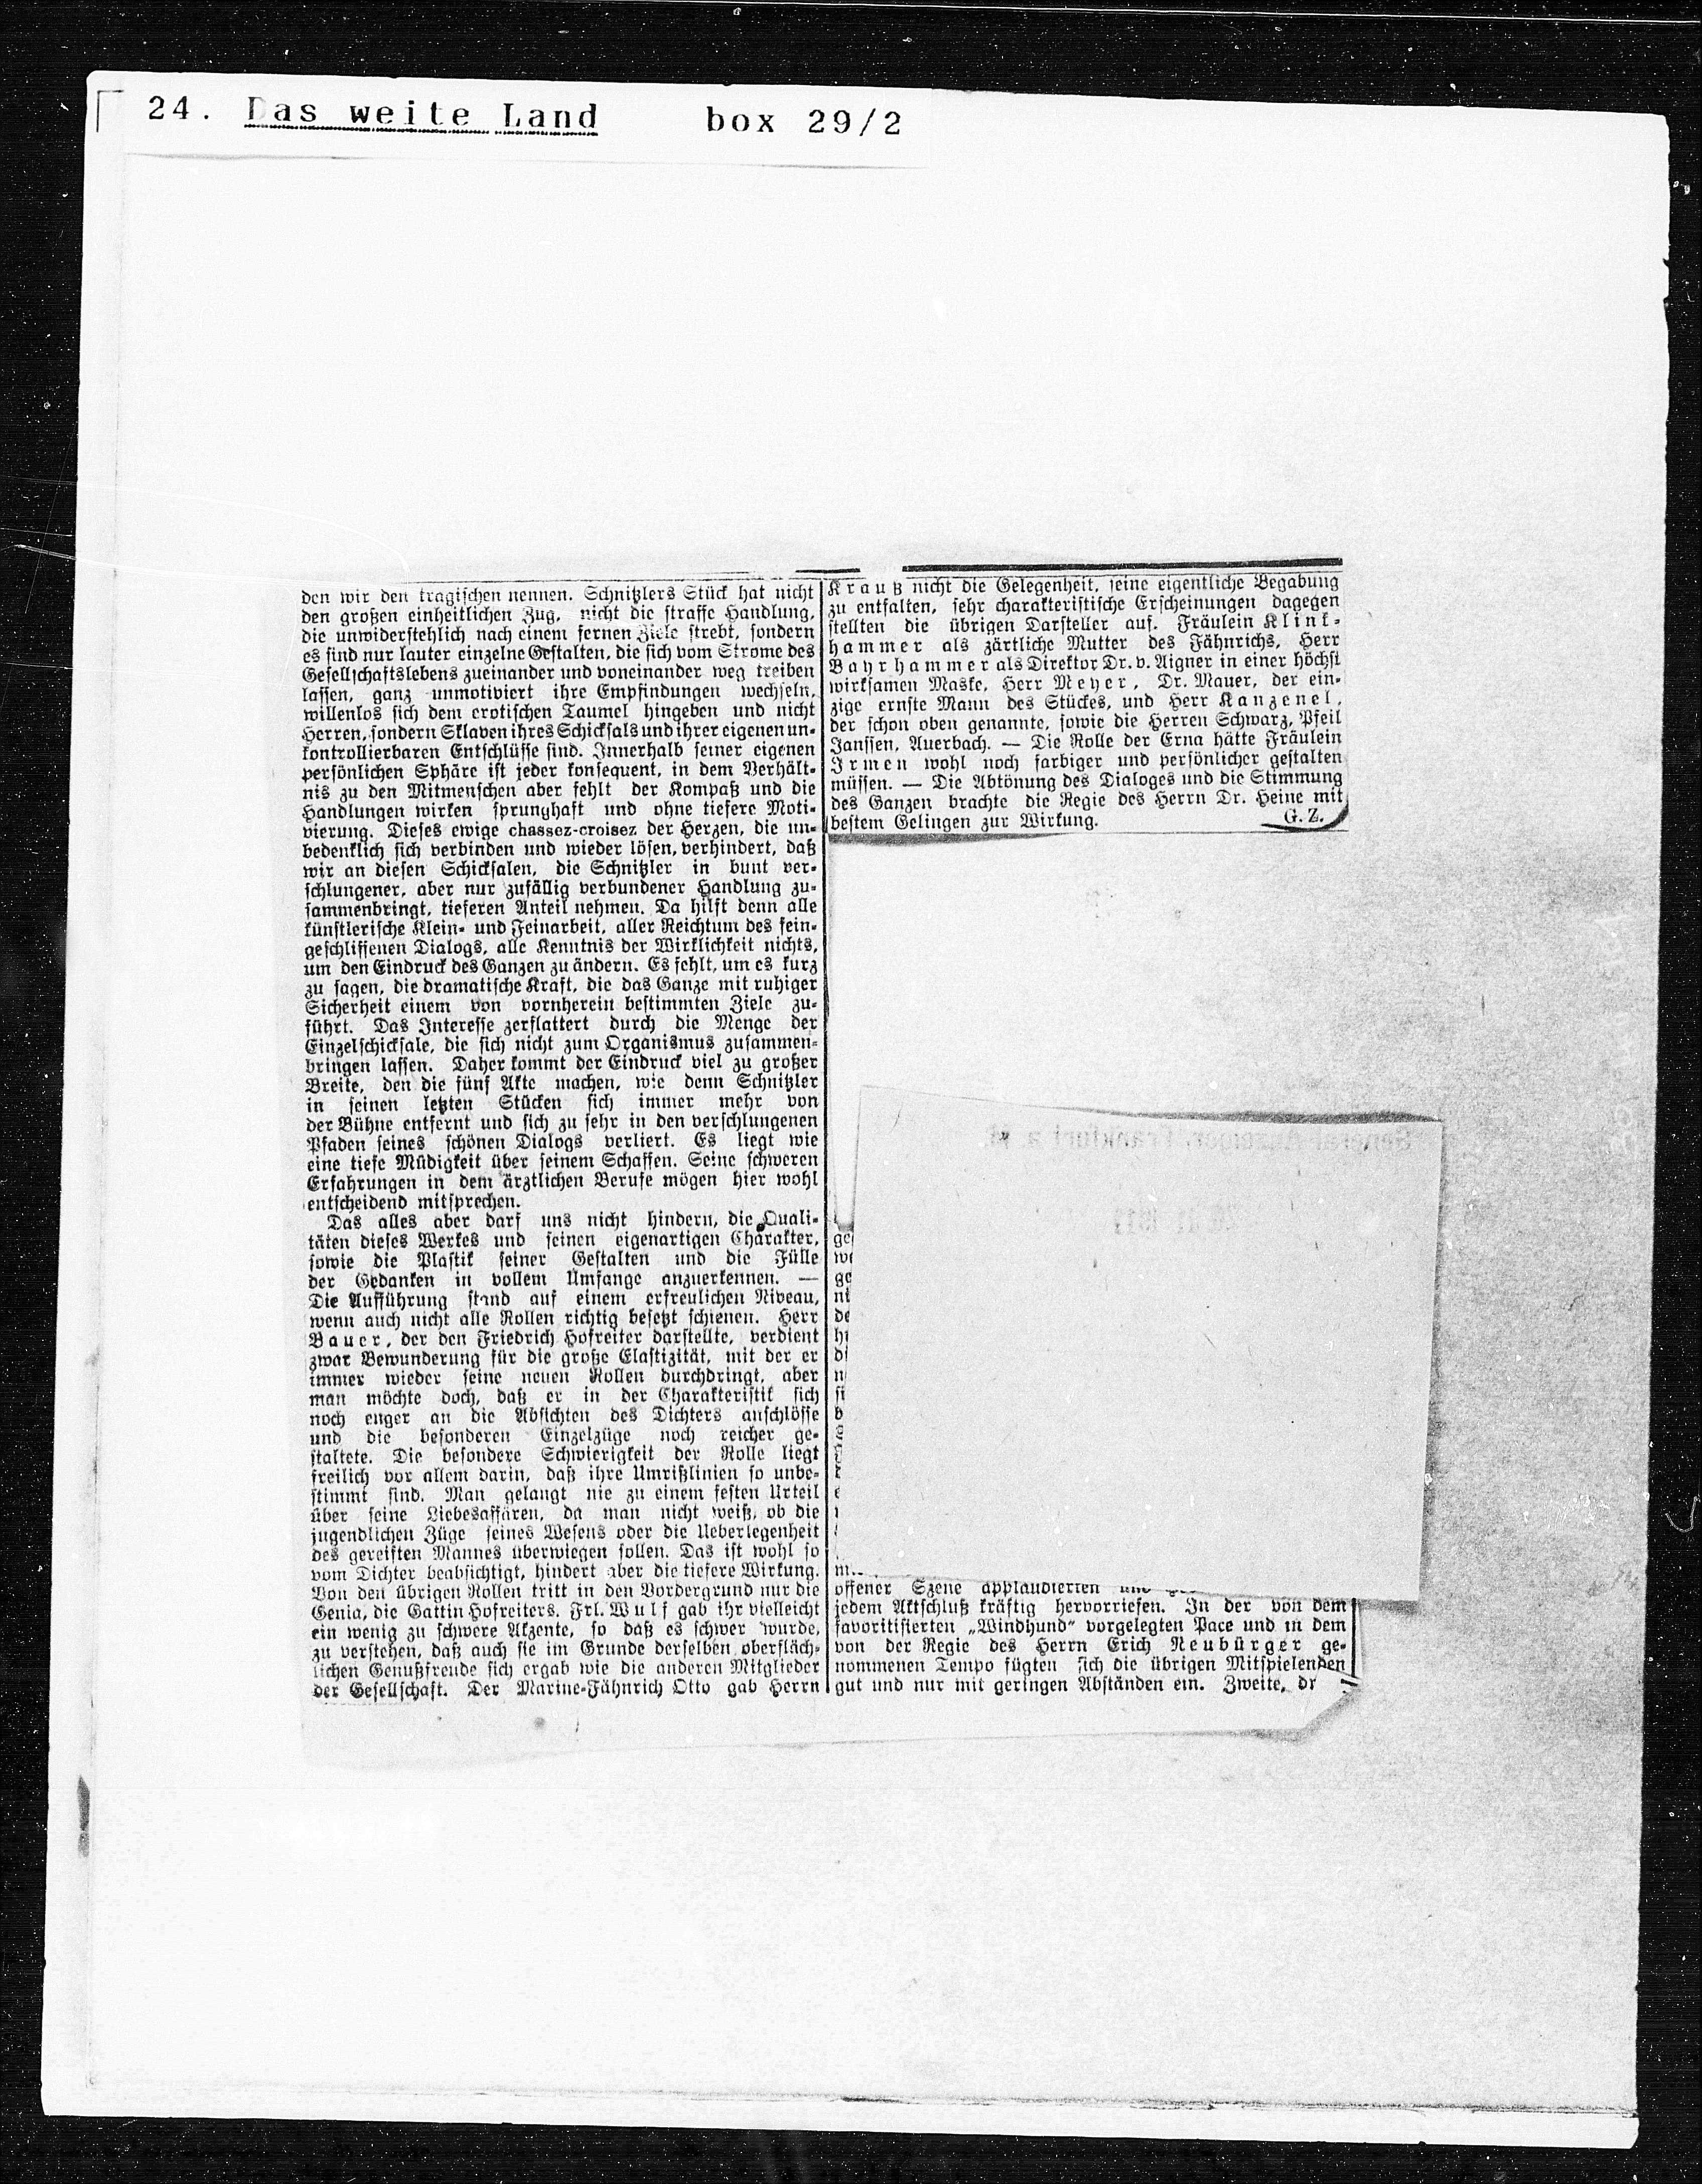 24. Das weite Land box 29/2
den wir den tragischen nennen. Schnitzlers Stück hat nicht
den großen einheitlichen Zug, nicht die straffe Handlung,
die unwiderstehlich nach einem fernen Ziele strebt, sondern
es sind nur lauter einzelne Gestalten, die sich vom Strome des
Gesellschaftslebens zueinander und voneinander weg treiben
lassen, ganz unmotiviert ihre Empfindungen wechseln,
willenlos sich dem erotischen Taumel hingeben und nicht
Herren, sondern Sklaven ihres Schicksals und ihrer eigenen un-
kontrollierbaren Entschlüsse sind. Innerhalb seiner eigenen
persönlichen Sphäre ist jeder konsequent, in dem Verhält-
nis zu den Mitmenschen aber fehlt der Kompaß und die
Handlungen wirken sprunghaft und ohne tiefere Moti-
vierung. Dieses ewige chassez-croisez der Herzen, die un-
bedenklich sich verbinden und wieder lösen, verhindert, daß
wir an diesen Schicksalen, die Schnitzler in bunt ver-
schlungener, aber nur zufällig verbundener Handlung zu-
sammenbringt, tieferen Anteil nehmen. Da hilft denn alle
künstlerische Klein- und Feinarbeit, aller Reichtum des fein-
geschliffenen Dialogs, alle Kenntnis der Wirklichkeit nichts,
um den Eindruck des Ganzen zu ändern. Es fehlt, um es kurz
zu sagen, die dramatische Kraft, die das Ganze mit ruhiger
Sicherheit einem von vornherein bestimmten Ziele zu-
führt. Das Interesse zerflattert durch die Menge der
Einzelschicksale, die sich nicht zum Organismus zusammen-
bringen lassen. Daher kommt der Eindruck viel zu großer
Breite, den die fünf Akte machen, wie denn Schnitzler
in seinen letzten Stücken sich immer mehr von
der Bühne entfernt und sich zu sehr in den verschlungenen
Pfaden seines schönen Dialogs verliert. Es liegt wie
eine tiefe Müdigkeit über seinem Schaffen. Seine schweren
Erfahrungen in dem ärztlichen Berufe mögen hier wohl
entscheidend mitsprechen.
Das alles aber darf uns nicht hindern, die Quali-
täten dieses Werkes und seinen eigenartigen Charakter,
sowie die Plastik seiner Gestalten und die Fülle
der Gedanken in vollem Umfange anzuerkennen. —
Die Aufführung stand auf einem erfreulichen Niveau,
wenn auch nicht alle Rollen richtig besetzt schienen. Herr
Bauer, der den Friedrich Hofreiter darstellte, verdient
zwar Bewunderung für die große Elastizität, mit der er
immer wieder seine neuen Rollen durchdringt, aber
man möchte doch, daß er in der Charakteristik sich
noch enger an die Absichten des Dichters anschlösse
und die besonderen Einzelzüge noch reicher ge-
staltete. Die besondere Schwierigkeit der Rolle liegt
freilich vor allem darin, daß ihre Umrißlinien so unbe-
stimmt sind. Man gelangt nie zu einem festen Urteil
über seine Liebesaffären, da man nicht weiß, ob die
jugendlichen Züge seines Wesens oder die Ueberlegenheit
des gereiften Mannes überwiegen sollen. Das ist wohl so
vom Dichter beabsichtigt, hindert aber die tiefere Wirkung.
Von den übrigen Rollen tritt in den Vordergrund nur die
Genia, die Gattin Hofreiters. Frl. Wulf gab ihr vielleicht
ein wenig zu schwere Akzente, so daß es schwer wurde,
zu verstehen, daß auch sie im Grunde derselben oberfläch-
lichen Genußfreude sich ergab wie die anderen Mitglieder
der Gesellschaft. Der Marine-Fähnrich Otto gab Herrn
Krauß nicht die Gelegenheit, seine eigentliche Begabung
zu entfalten, sehr charakteristische Erscheinungen dagegen
stellten die übrigen Darsteller auf. Fräulein Klink-
hammer als zärtliche Mutter des Fähnrichs, Herr
Bayrhammer als Direktor Dr. v. Aigner in einer höchst
wirksamen Maske, Herr Meyer, Dr. Mauer, der ein-
zige ernste Mann des Stückes, und Herr Kanzenel,
der schon oben genannte, sowie die Herren Schwarz, Pfeil
Janssen, Auerbach. — Die Rolle der Erna hätte Fräulein
Irmen wohl noch farbiger und persönlicher gestalten
müssen. — Die Abtönung des Dialoges und die Stimmung
des Ganzen brachte die Regie des Herrn Dr. Heine mit
bestem Gelingen zur Wirkung. G. Z.
offener Szene applaudierten
jedem Aktschluß kräftig hervorriefen. In der von dem
favoritisierten „Windhund" vorgelegten Pace und in dem
von der Regie des Herrn Erich Neubürger ge-
nommenen Tempo fügten sich die übrigen Mitspielenden
gut und nur mit geringen Abständen ein. Zweite, dr